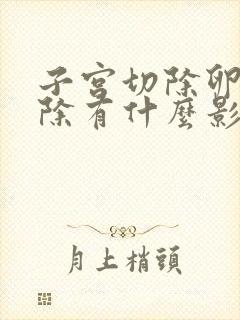 子宮切除卵
除有什麼影
月上梢頭